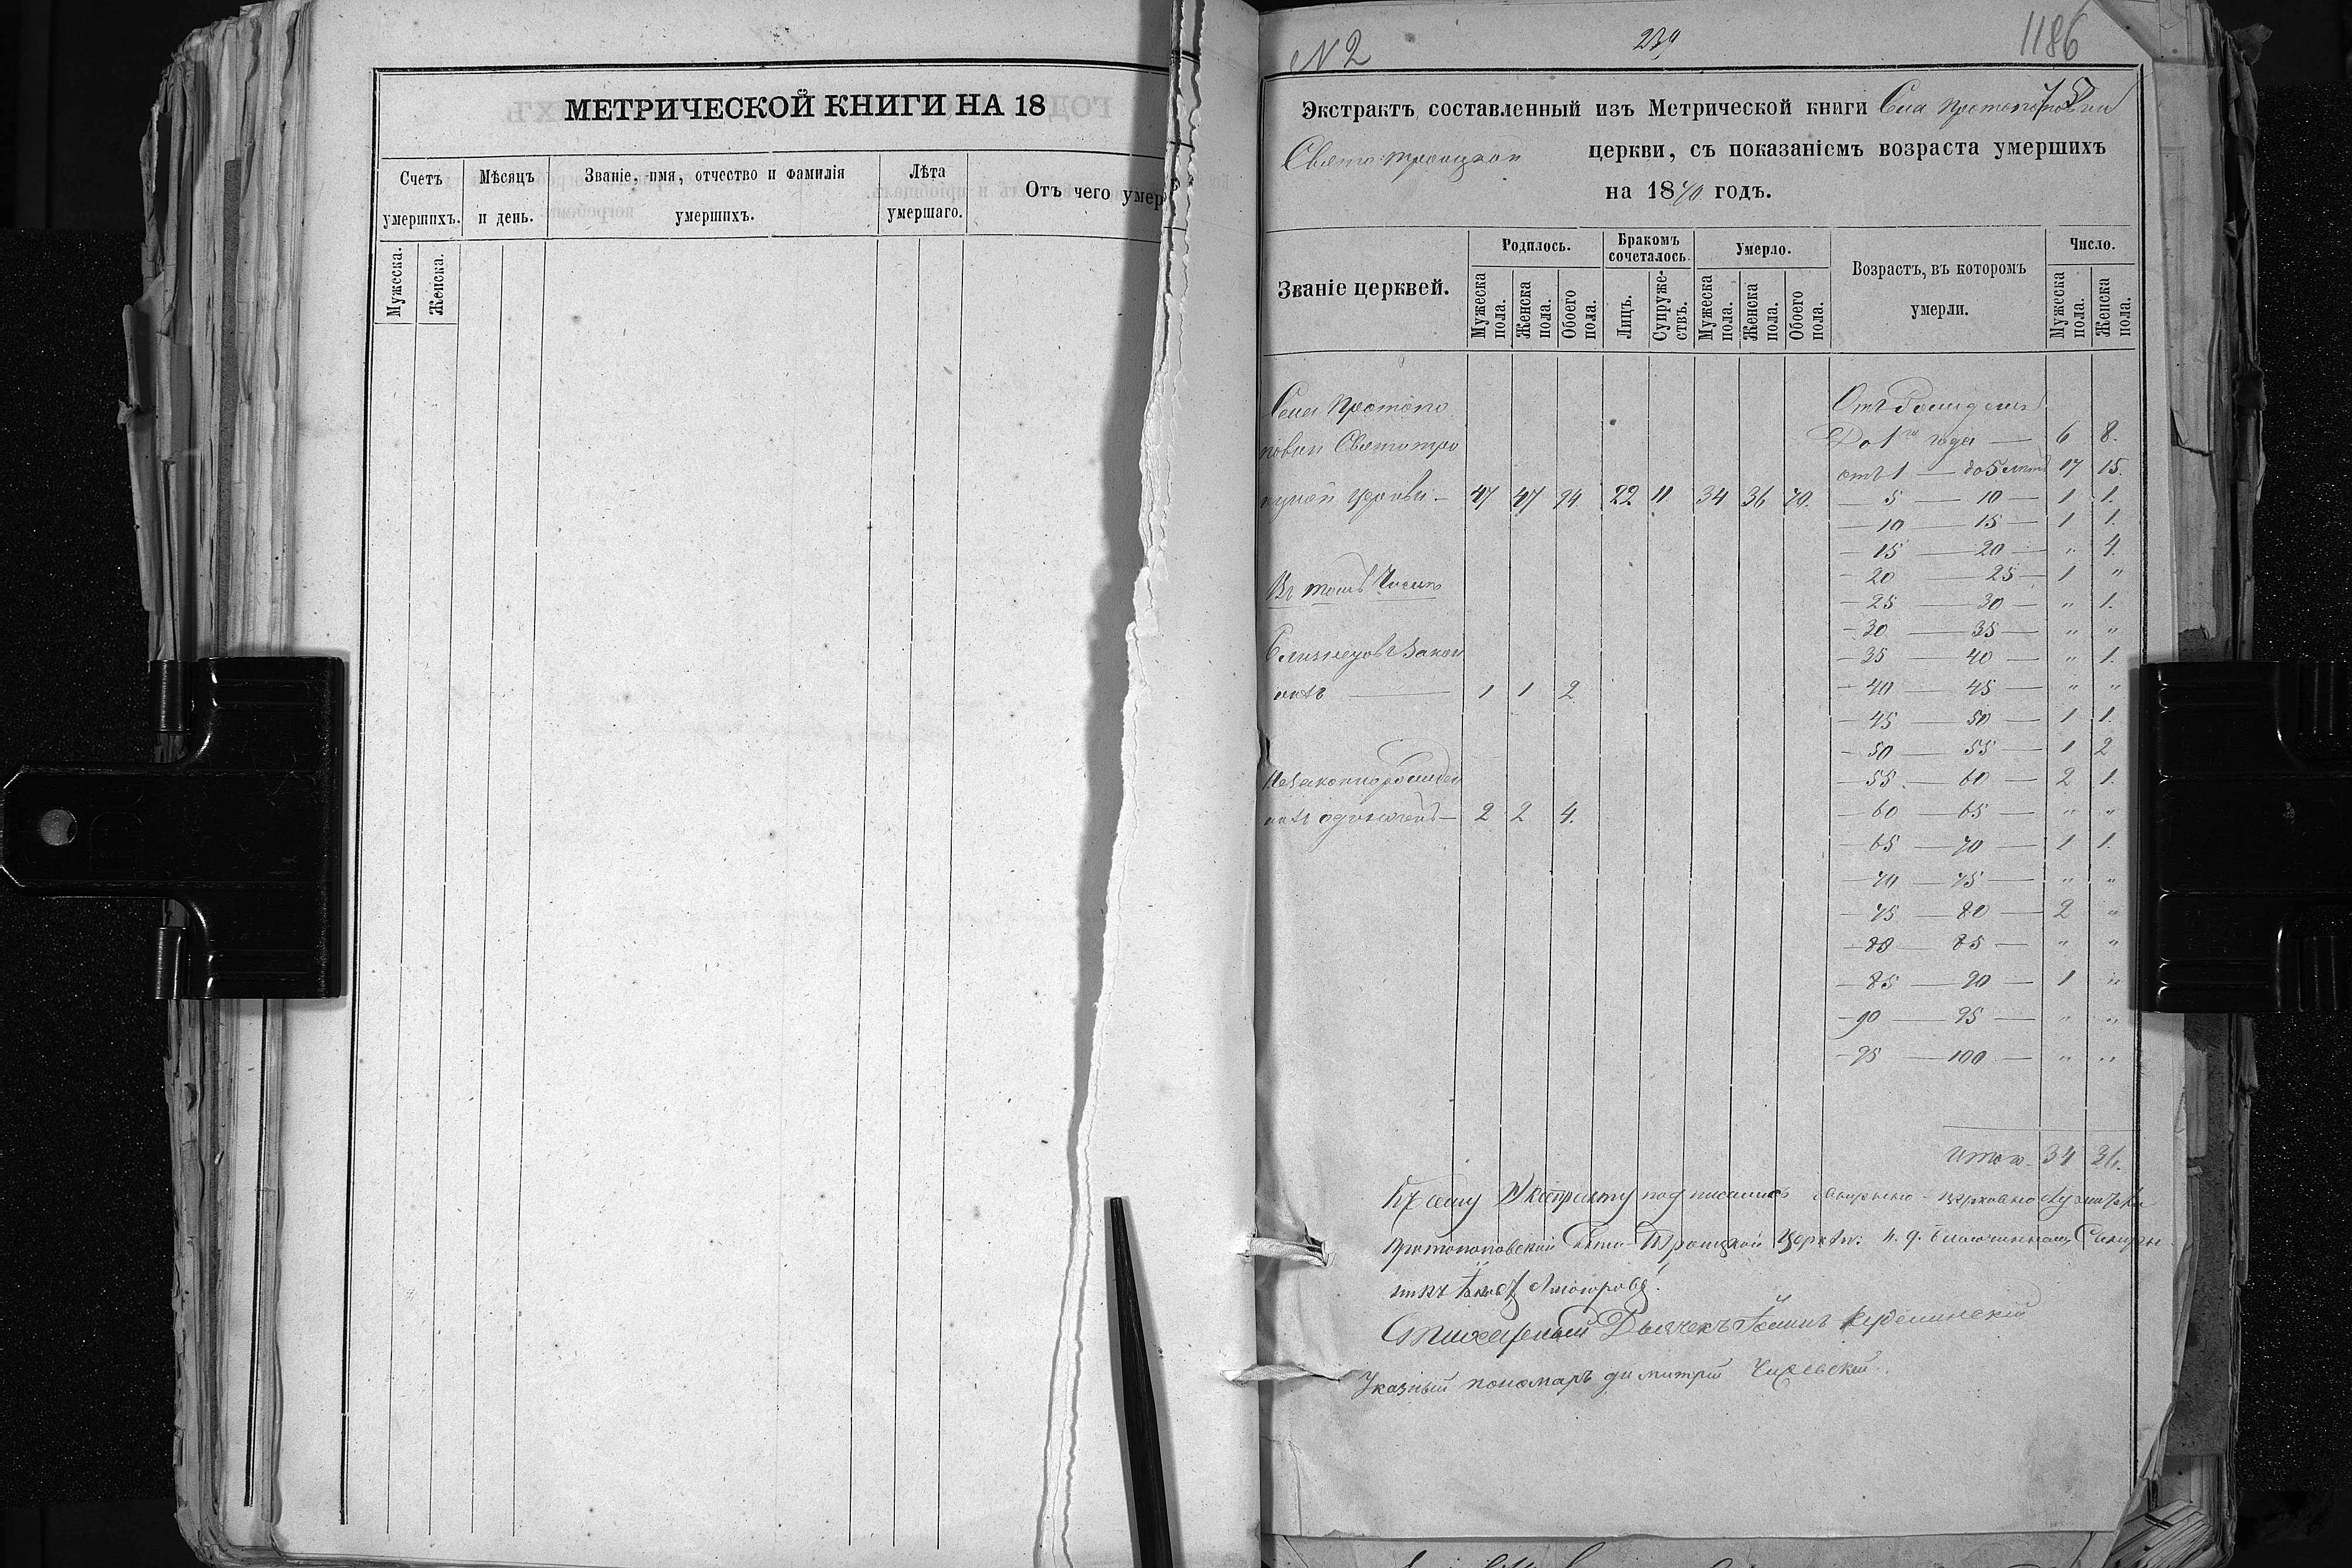 МЕТРИЧЕСКОЙ КНИГИ НА 18
Счетъ умершихъ. Мѣсяцъ и день. Званіе, имя, отчество и фамилія умершихъ. Лѣта умершаго. Отъ чего умер
Мужеска. Женска.
N 2 1186
Экстрактъ составленный изъ Метрической книги Села Протопоповки
Свято Троицкой церкви, съ показаніемъ возраста умершихъ
на 1870 годъ.
Званіе церквей. Родилось. Бракомъ сочеталось. Умерло. Возрастъ, въ которомъ умерли. Число.
Мужеска пола. Женска пола. Обоего пола. Лицъ. Супружествъ. Мужеска пола. Женска пола. Обоего пола. Мужеска пола. Женска пола.
Села Протопо
повки Святотро
ицкой церкви — 47 47 94 22 11 34 36 70.
Въ томъ числѣ
Близнецовъ Закон
ныхъ — 1 1 2
Незаконнорожден
ныхъ — 2 2 4.
Отъ Рожденія
До 1го года — 6 8.
отъ 1 — до 5 лѣтъ 17 15.
— 5 — 10 — 1 1.
— 10 — 15 — 1 1.
— 15 — 20 — " 4.
— 20 — 25 — 1 "
— 25 — 30 — " 1.
— 30 — 35 — " "
— 35 — 40 — " 1.
— 40 — 45 — " "
— 45 — 50 — 1 1.
— 50 — 55 — 1 2
— 55 — 60 — 2 1.
— 60 — 65 — " "
— 65 — 70 — 1 1.
— 70 — 75 — " "
— 75 — 80 — 2 "
— 80 — 85 — " "
— 85 — 90 — 1 "
— 90 — 95 — " "
— 95 — 100 — " "
Итого. 34 36.
Къ сему Экстракту подписались
Протопоповской Свято-Троицкой Церкви:
Стихарный Дьячекъ
Указный пономаръ димитрій